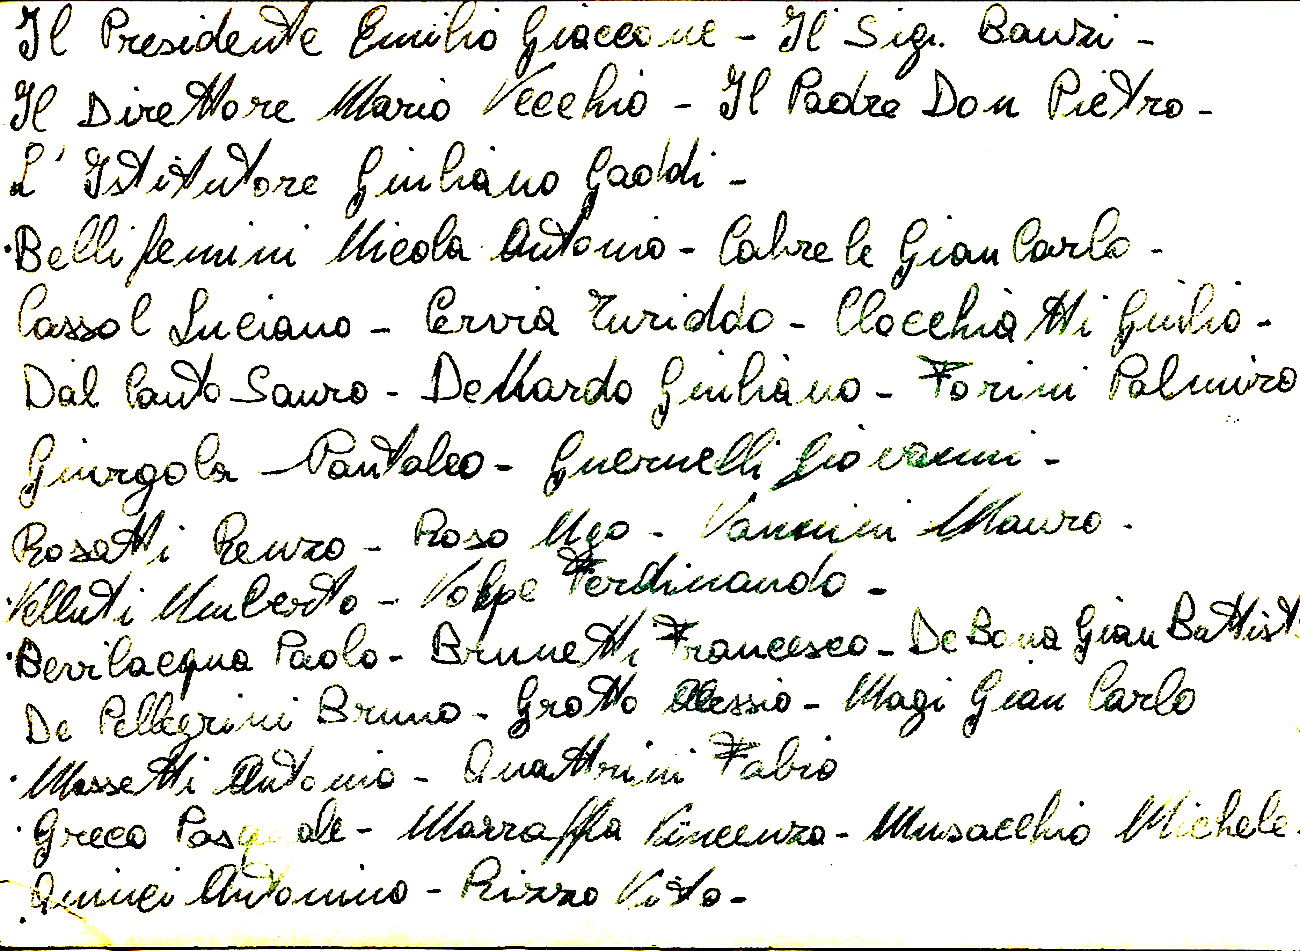 Il Presidente Emilio Giaccone - Il Sig. Banzi -
Il Direttore Mario Vecchio - Il Padre Don Pietro -
L' Istitutore Giuliano Gaddi -
Bellifemini Nicola Antonio - Cabrele Gian Carlo -
Cassol Luciano - Cervia Turiddo - Clocchiatti Giulio -
Dal Canto Sauro - De Nardo Giuliano - Forini Palmiro
Giurgola - Pantaleo - Guernelli Giovanni -
Rosatti Renzo - Roso Ugo - Vannini Mauro -
Velluti Umberto - Volpe Ferdinando -
Bevilacqua Paolo - Brunetti Francesco - De Bona Gian Battist
De Pellegrini Bruno - Grotto Alessio - Magi Gian Carlo
Massetti Antonio - Quattrini Fabio
Greco Pasquale - Marraffa Vincenzo - Musacchio Michele -
Quinci Antonino - Rizzo Vito -